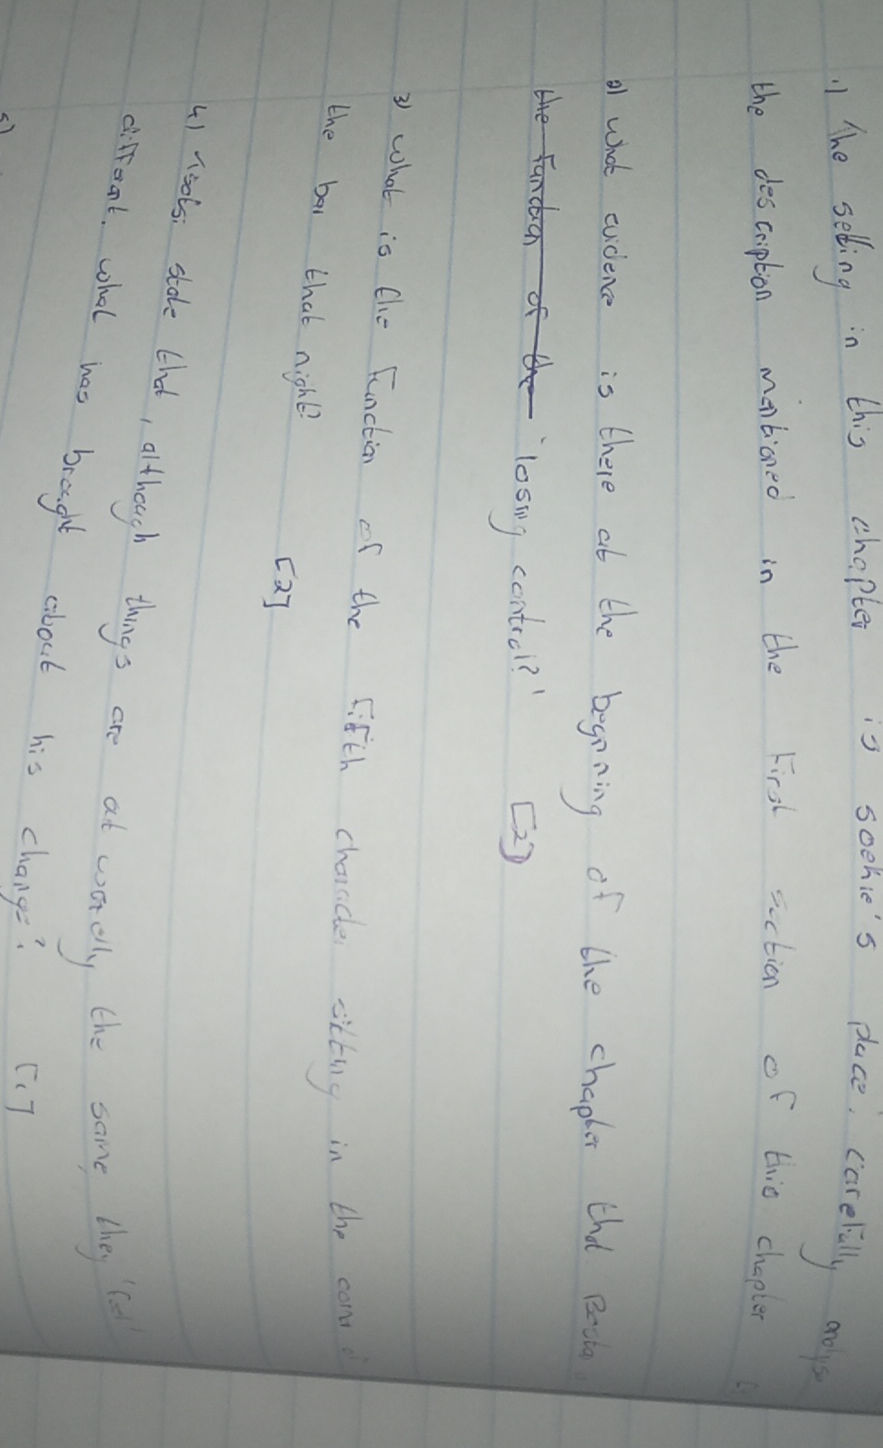 1) The setting in this chapter is Sookie's place. Carefully analyse
the description mentioned in the first section of this chapter
2) What evidence is there at the beginning of the chapter that
the function of the 'losing control?' [2]
3) What is the function of the fifth character sitting in the
the bar that night? [2]
4) state that, although things are outwardly the same, they 'feel'
different. what has brought about his change? [1]
5)